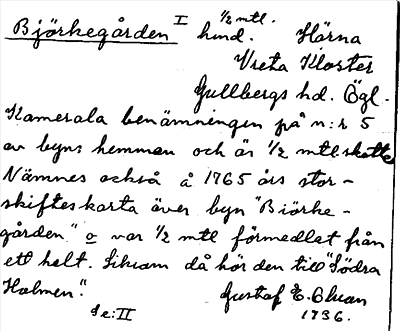 Björkegården I 1/2 mtl.
hmd. Härna
Vreta Kloster
Gullbergs hd. Ögl.
Kamerala benämningen på n:r 5
av byns hemman och är 1/2 mtl skatte
Nämnes också å 1765 års stor-
skifteskarta över byn "Biörke-
gården" o var 1/2 mtl förmedlat från
ett helt. Liksom då hör den till "Södra
Holmen".
Se: II
Gustaf E.
1936.